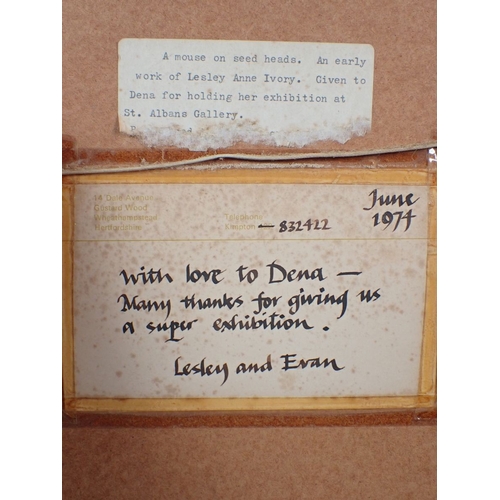 A mouse on seed heads. An early
work of Lesley Anne Ivory. Given to
Dena for holding her exhibition at
St. Albans Gallery.
Wheathampstead
Hertfordshire
Telephone
832422
June
1974
with love to Dena —
Many thanks for giving us
a super exhibition.
Lesley and Evan